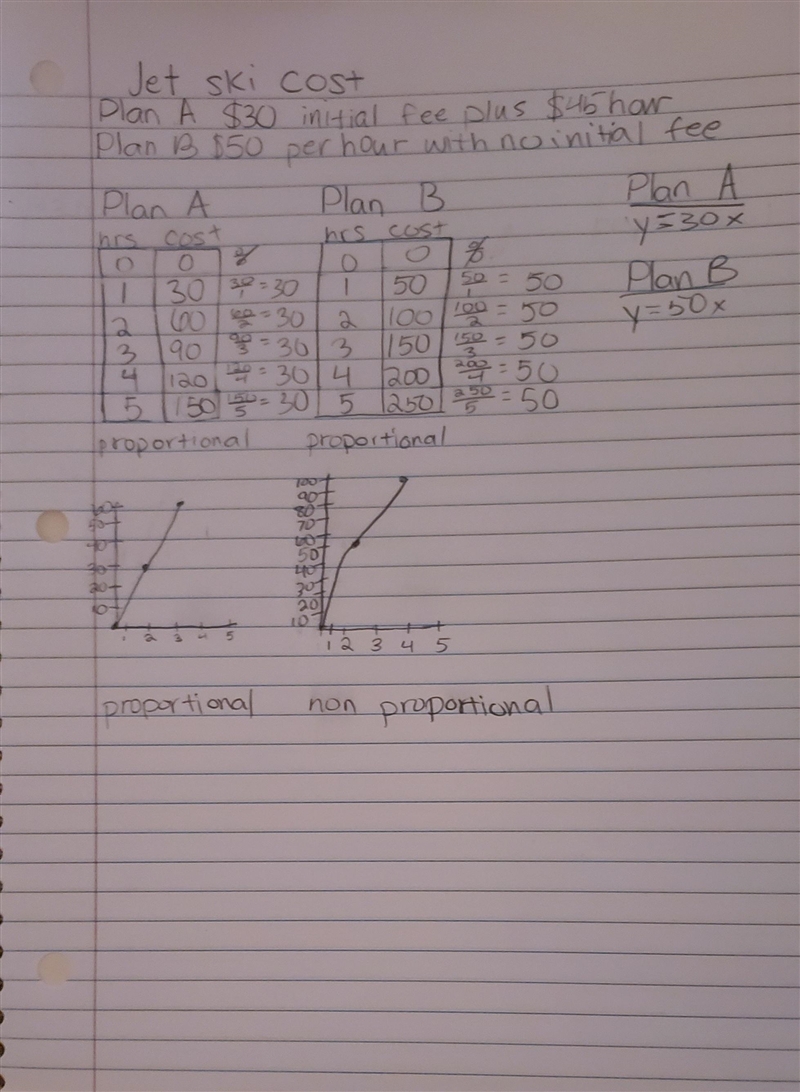 Jet ski cost
Plan A $30 initial fee plus $45 hour
Plan B $50 per hour with no initial fee
Plan A Plan B Plan A
y=30x
hrs cost hrs cost
0 0 0 0 Plan B
1 30 30/1 = 30 1 50 50/1 = 50
y=50x
2 60 60/2 = 30 2 100 100/2 = 50
3 90 90/3 = 30 3 150 150/3 = 50
4 120 120/4 = 30 4 200 200/4 = 50
5 150 150/5 = 30 5 250 250/5 = 50
proportional proportional
60 100
50 90
40 80
30 70
20 60
10 50
40
30
20
10
1 2 3 4 5 1 2 3 4 5
proportional non proportional